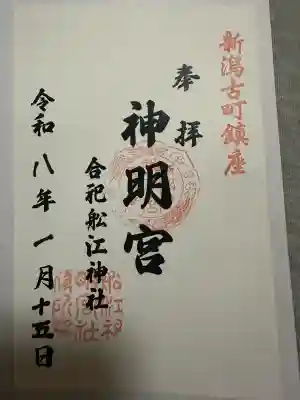 新潟古町鎮座
奉拝
神明宮
合祀船江神社
令和八年一月十五日